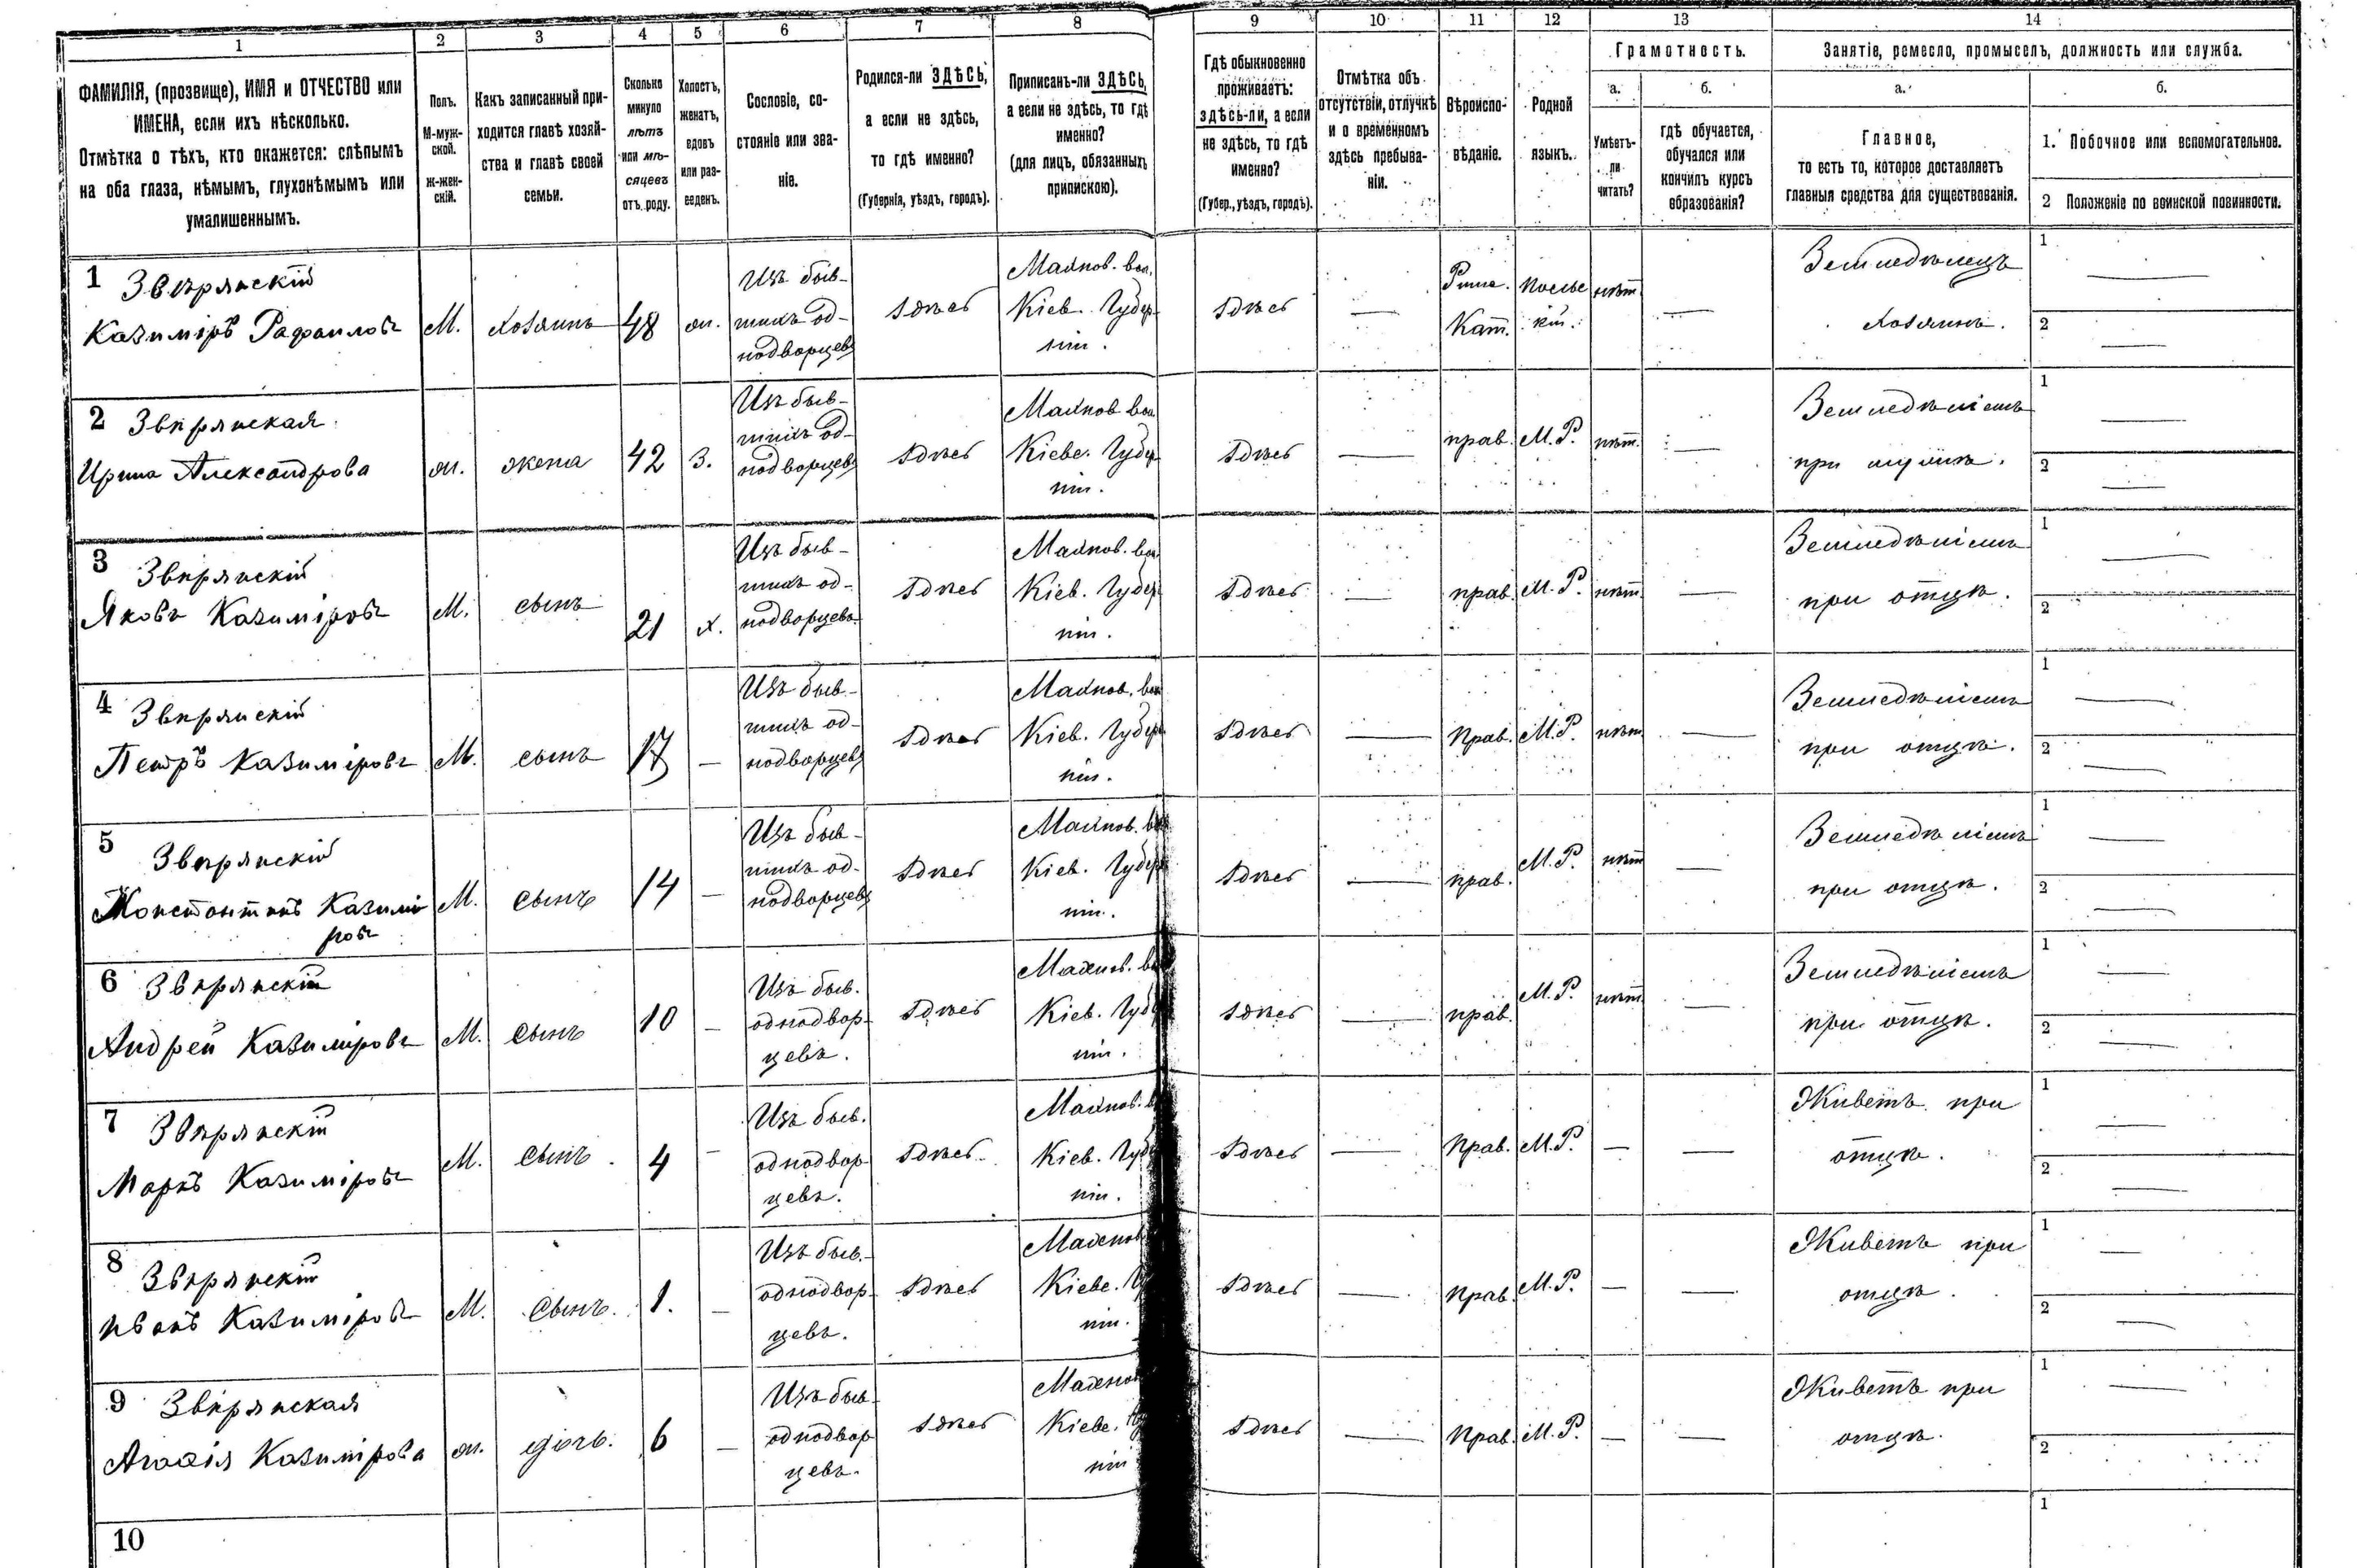 1 2 3 4 5 6 7 8 9 10 11 12 13 14
ФАМИЛІЯ, (прозвище), ИМЯ и ОТЧЕСТВО или
ИМЕНА, если ихъ нѣсколько.
Отмѣтка о тѣхъ, кто окажется: слѣпымъ
на оба глаза, нѣмымъ, глухонѣмымъ или
умалишеннымъ.
Полъ.
М-муж-
ской.
Ж-жен-
скій.
Какъ записанный при-
ходится главѣ хозяй-
ства и главѣ своей
семьи.
Сколько
минуло
лѣтъ
или мѣ-
сяцевъ
отъ роду.
Холостъ,
женатъ,
вдовъ
или раз-
веденъ.
Сословіе, со-
стояніе или зва-
ніе.
Родился-ли ЗДѢСЬ,
а если не здѣсь,
то гдѣ именно?
(Губернія, уѣздъ, городъ).
Приписанъ-ли ЗДѢСЬ,
а если не здѣсь, то гдѣ
именно?
(для лицъ, обязанныхъ
припискою).
Гдѣ обыкновенно
проживаетъ:
здѣсь-ли, а если
не здѣсь, то гдѣ
именно?
(Губер., уѣздъ, городъ).
Отмѣтка объ
отсутствіи, отлучкѣ
и о временномъ
здѣсь пребыва-
ніи.
Вѣроиспо-
вѣданіе.
Родной
языкъ.
Грамотность.
а.
Умѣетъ-
ли
читать?
б.
гдѣ обучается,
обучался или
кончилъ курсъ
образованія?
Занятіе, ремесло, промыселъ, должность или служба.
а.
Главное,
то есть то, которое доставляетъ
главныя средства для существованія.
б.
1. Побочное или вспомогательное.
2 Положеніе по воинской повинности.
1 Звѣрянскій
Казиміръ Рафаиловъ
М.
хозяинъ
48
ж.
Изъ быв-
шихъ од-
нодворцевъ
здѣсь
Махнов. вол.
Кіев. Губер
ніи.
здѣсь
—
Рим.
Кат.
Польс
кій.
нѣт
—
Земледѣлецъ
хозяинъ.
1 —
2 —
2 Звѣрянская
Ирина Александрова
ж.
жена
42
З.
Изъ быв-
шихъ од-
нодворцевъ
здѣсь
Махнов вол
Кіевс. Губер
ніи.
здѣсь
—
прав.
М.Р.
нѣт.
—
Земледѣліемъ
при мужѣ.
1 —
2 —
3 Звѣрянскій
Яковъ Казиміровъ
М.
сынъ
21
х.
Изъ быв-
шихъ од-
нодворцевъ
здѣсь
Махнов. вол
Кіев. Губер
ніи.
здѣсь
—
прав.
М.Р.
нѣт
—
Земледѣліемъ
при отцѣ.
1 —
2 —
4 Звѣрянскій
Петръ Казиміровъ
М.
сынъ
17
—
Изъ быв-
шихъ од-
нодворцевъ
здѣсь
Махнов. вол
Кіев. Губер
ніи.
здѣсь
—
Прав.
М.Р.
нѣт
—
Земледѣліемъ
при отцѣ.
1 —
2 —
5 Звѣрянскій
Константинъ Казими
ровъ
М.
сынъ
14
—
Изъ быв-
шихъ од-
нодворцевъ
здѣсь
Махнов. во
Кіев. Губер
ніи.
здѣсь
—
прав.
М.Р.
нѣт
—
Земледѣліемъ
при отцѣ.
1 —
2 —
6 Звѣрянскій
Андрей Казиміровъ
М.
сынъ
10
—
Изъ быв.
однодвор-
цевъ.
здѣсь
Махнов. в
Кіев. Губ
ніи.
здѣсь
—
прав.
М.Р.
нѣт
—
Земледѣліемъ
при отцѣ.
1 —
2 —
7 Звѣрянскій
Маркъ Казиміровъ
М.
сынъ.
4
—
Изъ быв.
однодвор-
цевъ.
здѣсь
Махнов. в
Кіев. Губ
ніи.
здѣсь
—
Прав.
М.Р.
—
—
Живетъ при
отцѣ.
1 —
2 —
8 Звѣрянскій
Иванъ Казиміровъ
М.
сынъ.
1.
—
Изъ быв.-
однодвор-
цевъ.
здѣсь
Махнов
Кіевс. Г
ніи.
здѣсь
—
Прав.
М.Р.
—
—
Живетъ при
отцѣ.
1 —
2 —
9 Звѣрянская
Агафія Казимірова
ж.
дочь.
6
—
Изъ быв-
однодвор
цевъ.
здѣсь
Махнов
Кіевс. Гу
ніи
здѣсь
—
Прав.
М.Р.
—
—
Живетъ при
отцѣ.
1 —
2
10
1